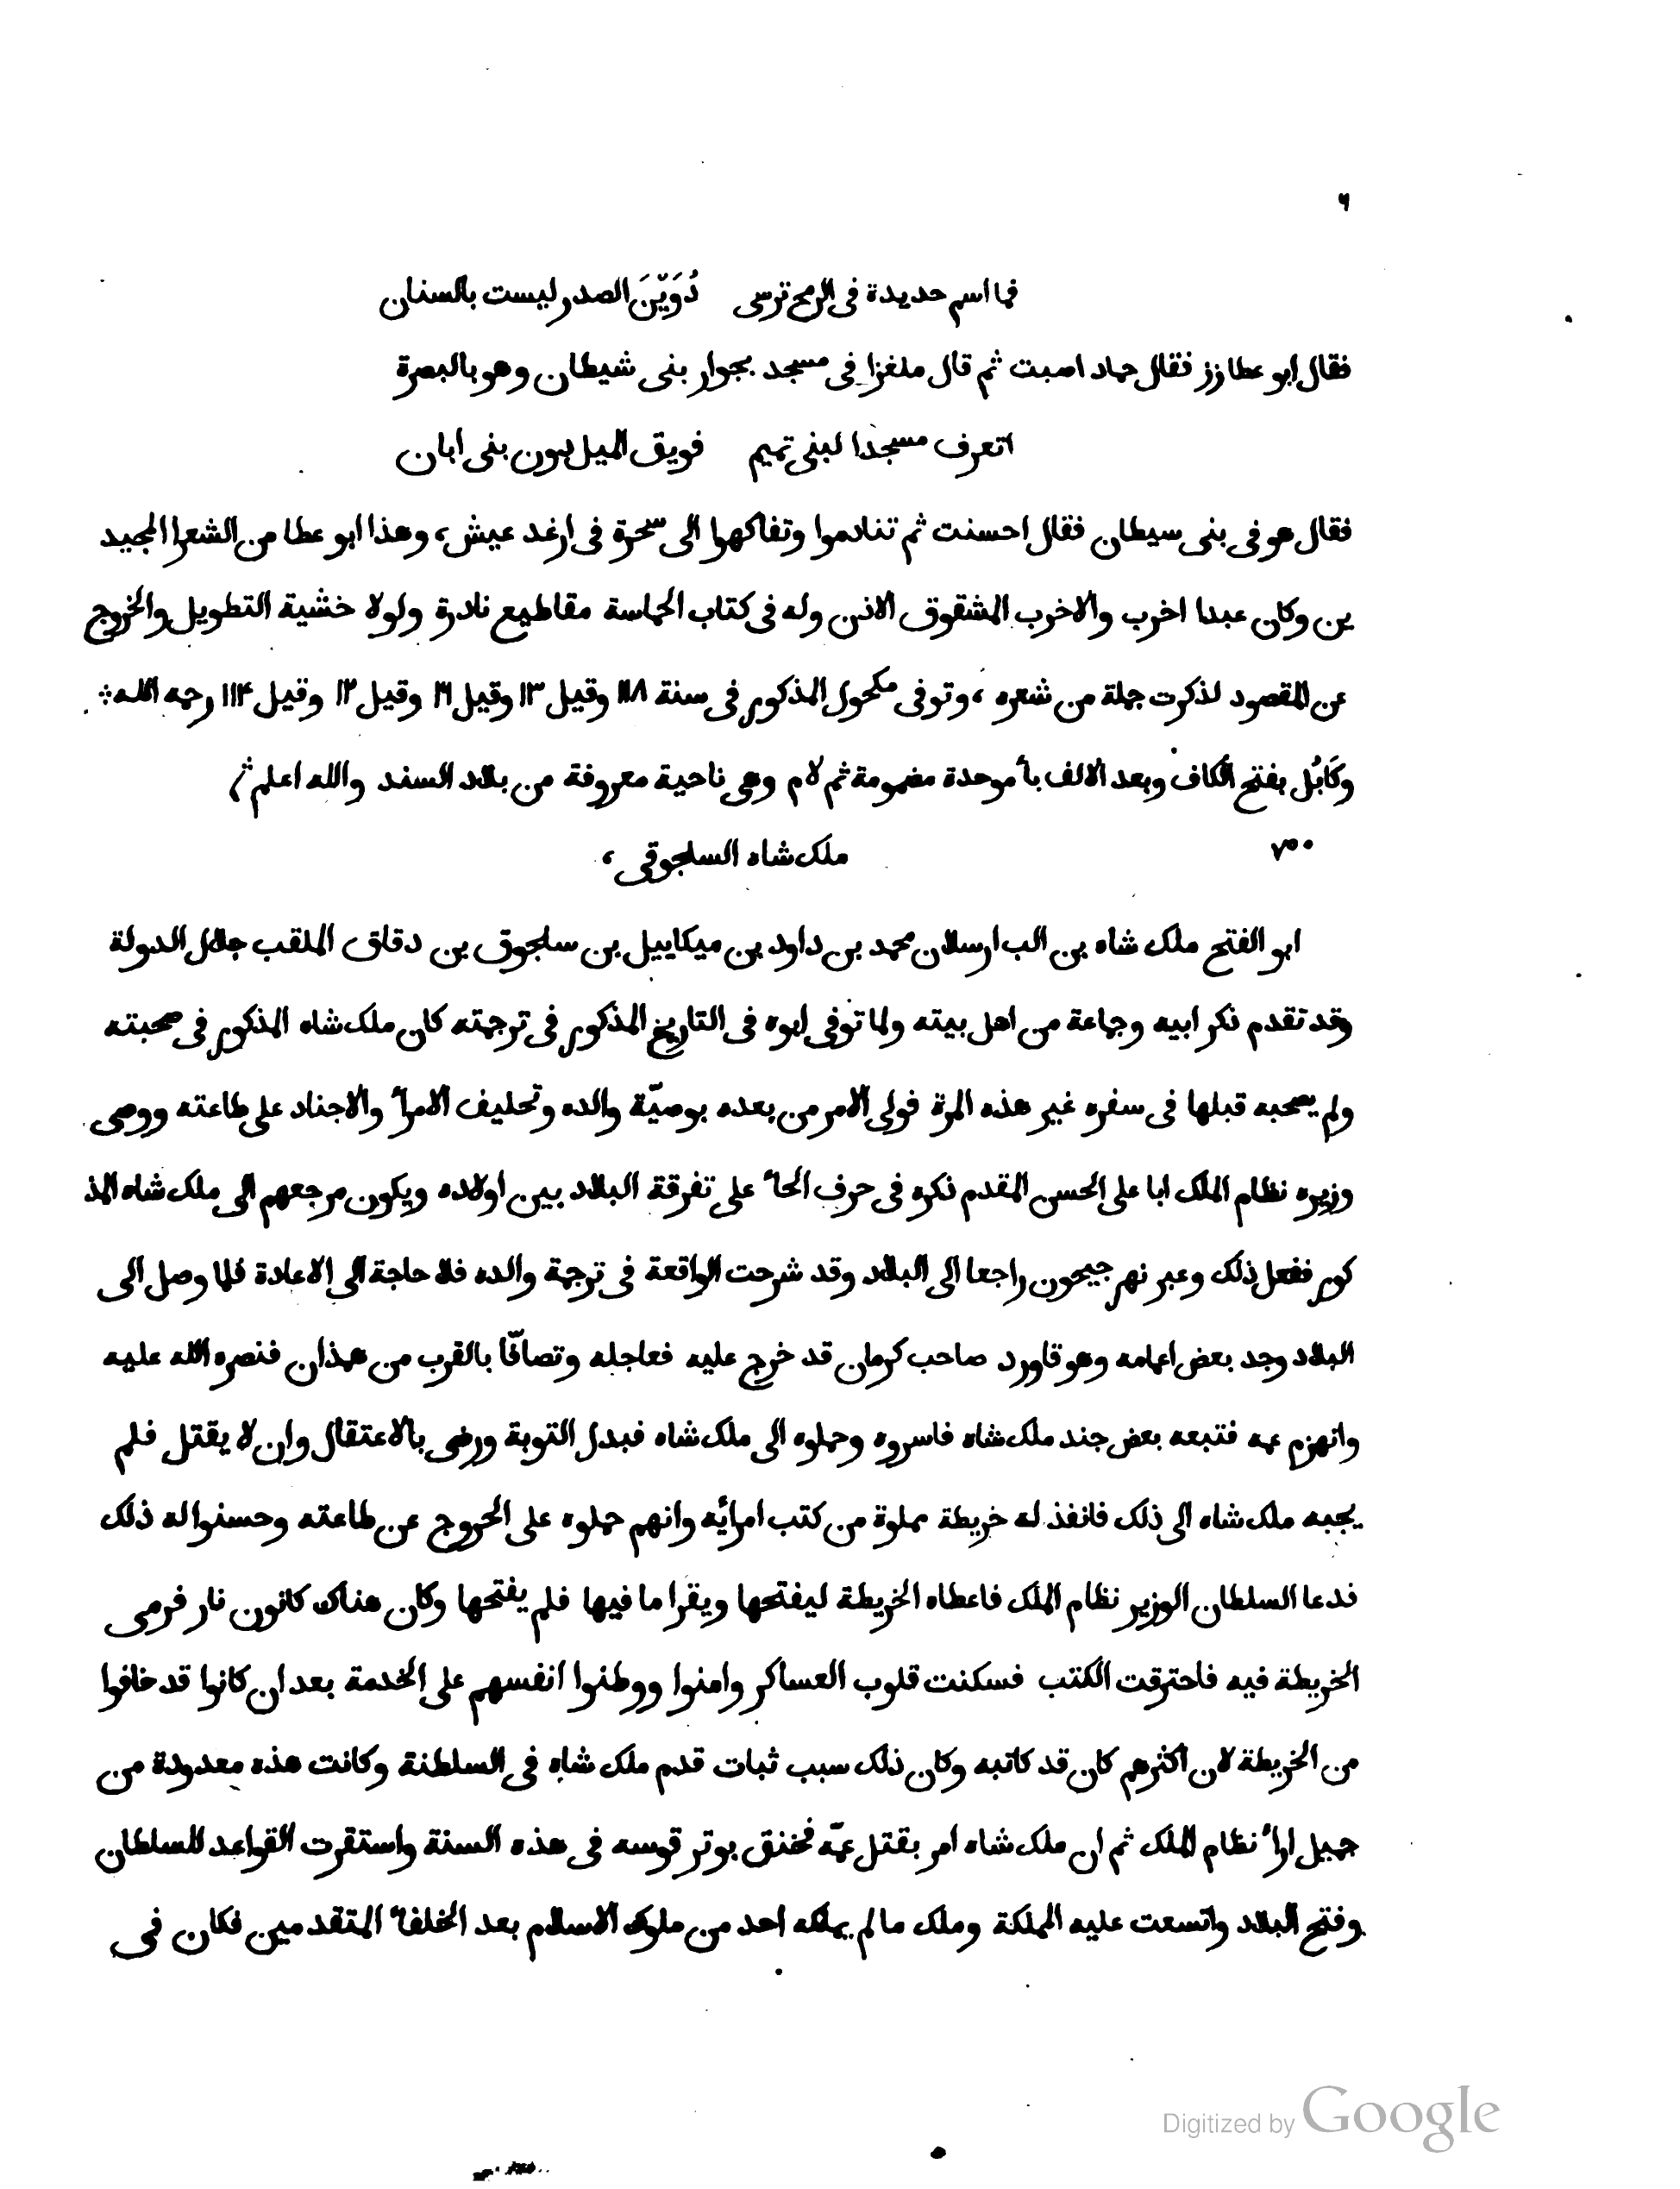 ٦
فما اسم حديدة فى الرمح ترسى دُوَيّنَ الصدر ليست بالسنان
فقال ابو عطا زز فقال حماد اصبت ثم قال ملغزا فى مسجد بجوار بنى شيطان وهو بالبصرة
اتعرف مسجدا لبنى تميم فويق الميل دون بنى ابان
فقال هو فى بنى سيطان فقال احسنت ثم تنادموا وتفاكهوا الى سحرة فى ارغد عيش، وهذا ابو عطا من الشعرا المجيد
ين وكان عبدا اخرب والاخرب المشقوق الاذن وله فى كتاب الحماسة مقاطيع نادرة ولولا خشية التطويل والخروج
عن المقصود لذكرت جملة من شعره، وتوفى مكحول المذكور فى سنة ١١٨ وقيل ١٣ وقيل ١٦ وقيل ١٢ وقيل ١١۴ رحمه الله
وكَابُل بفتح الكاف وبعد الالف بأ موحدة مضمومة ثم لام وهى ناحية معروفة من بلاد السند والله اعلم
٧٥٠ ملك شاه السلجوقى،
ابو الفتح ملك شاه بن الب ارسلان محمد بن داود بن ميكاييل بن سلجوق بن دقاق الملقب جلال الدولة
وقد تقدم ذكر ابيه وجماعة من اهل بيته ولما توفى ابوه فى التاريخ المذكور فى ترجمته كان ملك شاه المذكور فى صحبته
ولم يصحبه قبلها فى سفره غير هذه المرة فولى الامر من بعده بوصيّة والده وتحليف الامرأ والاجناد على طاعته ووصى
وزيره نظام الملك ابا على الحسن المقدم ذكره فى حرف الحأ على تفرقة البلاد بين اولاده ويكون مرجعهم الى ملك شاه المذ
كور ففعل ذلك وعبر نهر جيحون راجعا الى البلاد وقد شرحت الواقعة فى ترجمة والده فلا حاجة الى الاعادة فلما وصل الى
البلاد وجد بعض اعمامه وهو قاورد صاحب كرمان قد خرج عليه فعاجله وتصافّا بالقرب من همذان فنصره الله عليه
وانهزم عمه فتبعه بعض جند ملك شاه فاسروه وحملوه الى ملك شاه فبدل التوبة ورضى بالاعتقال وان لا يقتل فلم
يجبه ملك شاه الى ذلك فانفذ له خريطة مملوة من كتب امرأيه وانهم حملوه على الخروج عن طاعته وحسنوا له ذلك
فدعا السلطان الوزير نظام الملك فاعطاه الخريطة ليفتحها ويقرا ما فيها فلم يفتحها وكان هناك كانون نار فرمى
الخريطة فيه فاحترقت الكتب فسكنت قلوب العساكر وامنوا ووطنوا انفسهم على الخدمة بعد ان كانوا قد خافوا
من الخريطة لان اكثرهم كان قد كاتبه وكان ذلك سبب ثبات قدم ملك شاه فى السلطنة وكانت هذه معدودة من
جميل ارأ نظام الملك ثم ان ملك شاه امر بقتل عمّه فخنق بوتر قوسه فى هذه السنة واستقرت القواعد للسلطان
وفتح البلاد واتسعت عليه المملكة وملك ما لم يملكه احد من ملوك الاسلام بعد الخلفأ المتقدمين فكان فى
Digitized by Google